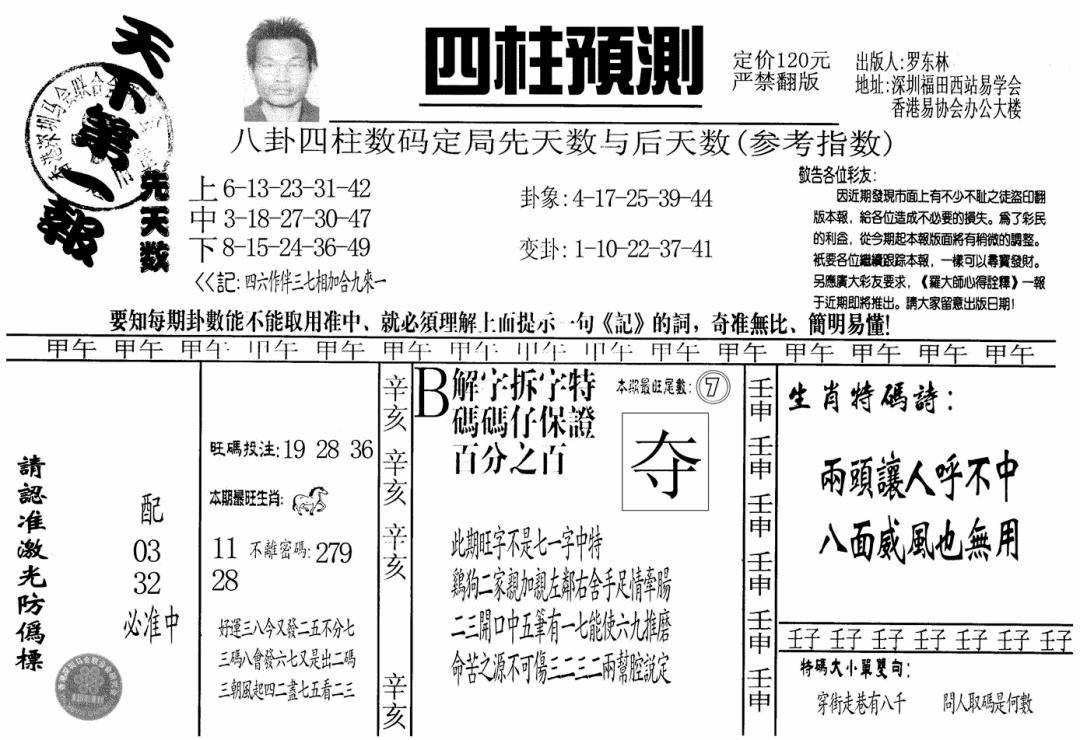 天下第一報
四柱預測
定价120元
严禁翻版
出版人:罗东林
地址:深圳福田西站易学会
香港易协会办公大楼
八卦四柱数码定局先天数与后天数(参考指数)
先天数
上 6-13-23-31-42
中 3-18-27-30-47
下 8-15-24-36-49
<<記:四六作伴三七相加合九來一
卦象:4-17-25-39-44
变卦:1-10-22-37-41
敬告各位彩友:
因近期發現市面上有不少不恥之徒盜印翻
版本報，給各位造成不必要的損失。爲了彩民
的利益，從今期起本報版面將有稍微的調整。
衹要各位繼續跟踪本報，一樣可以尋寶發財。
另應廣大彩友要求，《羅大師心得詮釋》一報
于近期即將推出。請大家留意出版日期!
要知每期卦數能不能取用准中、就必須理解上面提示一句《記》的詞，奇准無比、簡明易懂!
甲午 甲午 甲午 甲午 甲午 甲午 甲午 甲午 甲午 甲午 甲午 甲午 甲午 甲午 甲午
請認准激光防僞標
配
03
32
必准中
旺碼投注:19 28 36
本期最旺生肖:
11 不離密碼:279
28
好運三八今又發二五不分七
三碼八會發六七又是出二碼
三朝風起四二盡七五看二三
辛亥
辛亥
辛亥
辛亥
B解字拆字特
碼碼仔保證
百分之百
本期最旺尾數:7
夺
此期旺字不是七一字中特
鷄狗二家親加親左鄰右舍手足情牽腸
二三開口中五筆有一七能使六九推磨
命苦之源不可傷三二三二兩幫腔説定
壬申
壬申
壬申
壬申
壬申
壬申
生肖特碼詩:
兩頭讓人呼不中
八面威風也無用
壬子 壬子 壬子 壬子 壬子 壬子 壬子
特碼大小單雙句:
穿街走巷有八千 問人取碼是何數